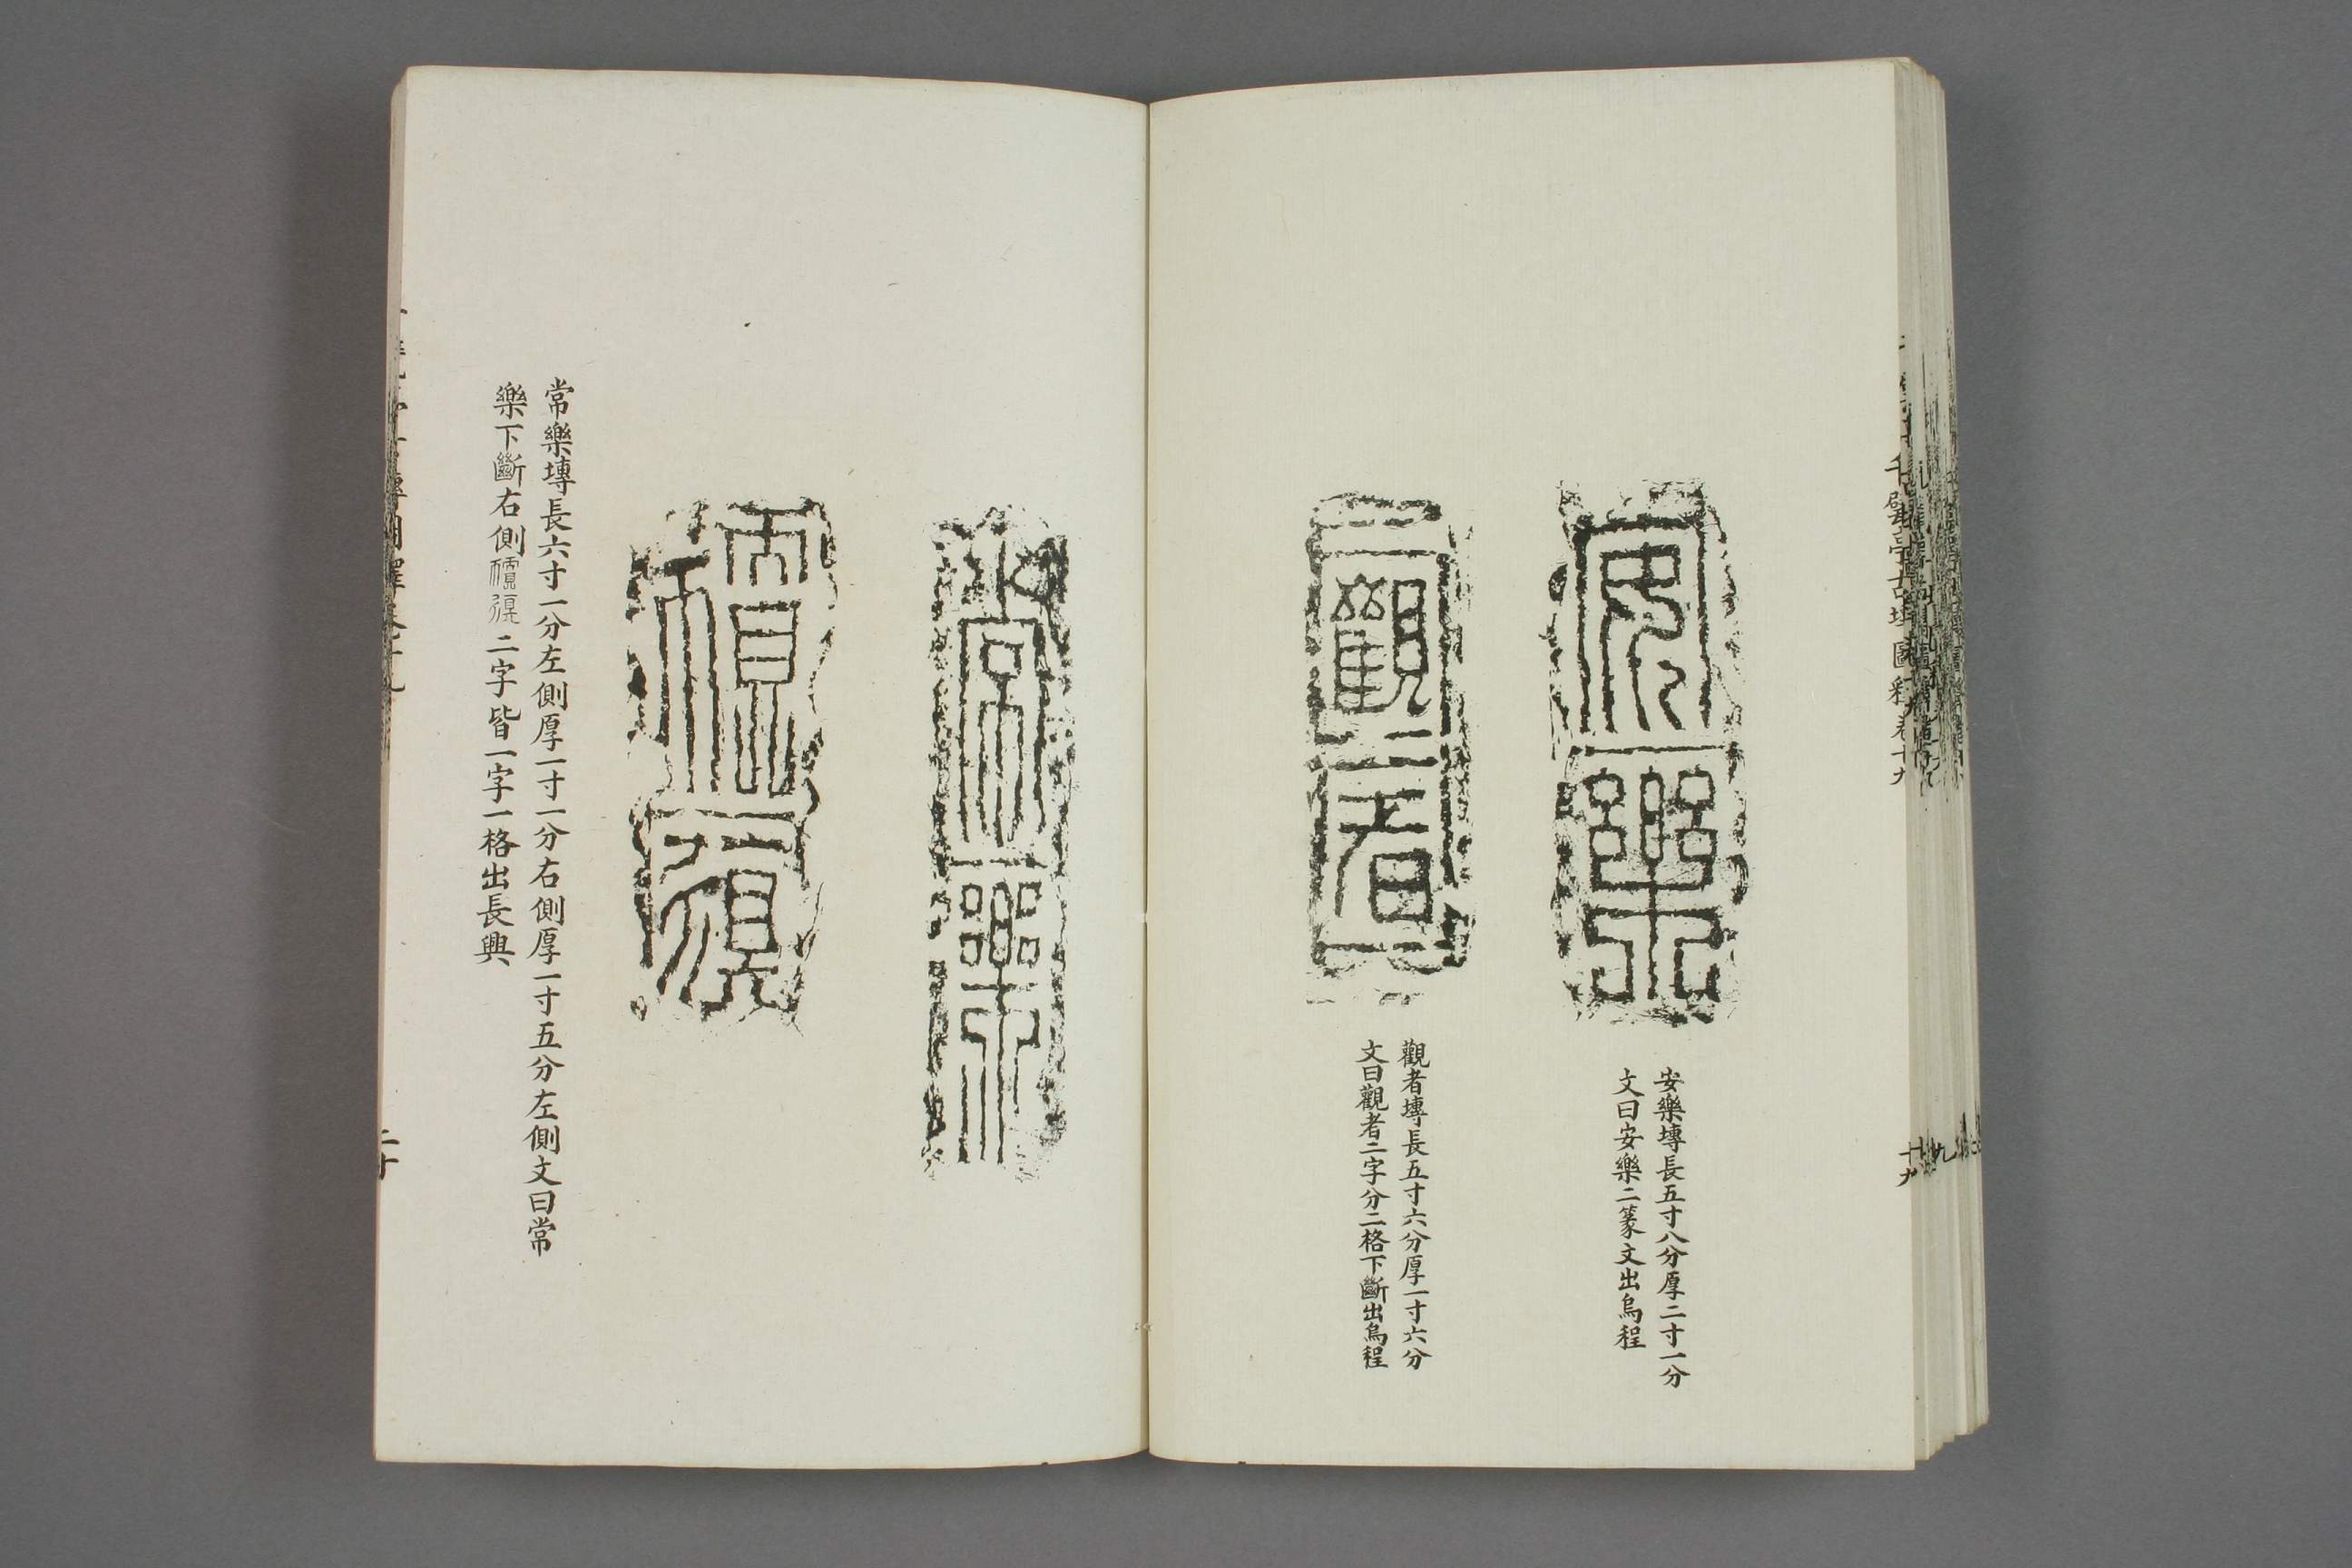 安樂
安樂塼長五寸八分厚二寸一分
文曰安樂二篆文出烏程
觀者
觀者塼長五寸六分厚一寸六分
文曰觀者二字分二格下斷出烏程
常樂
常樂塼長六寸一分左側厚一寸一分右側厚一寸五分左側文曰常
樂下斷右側二字皆一字一格出長興
千甓亭古塼圖釋卷十九
十九
二十